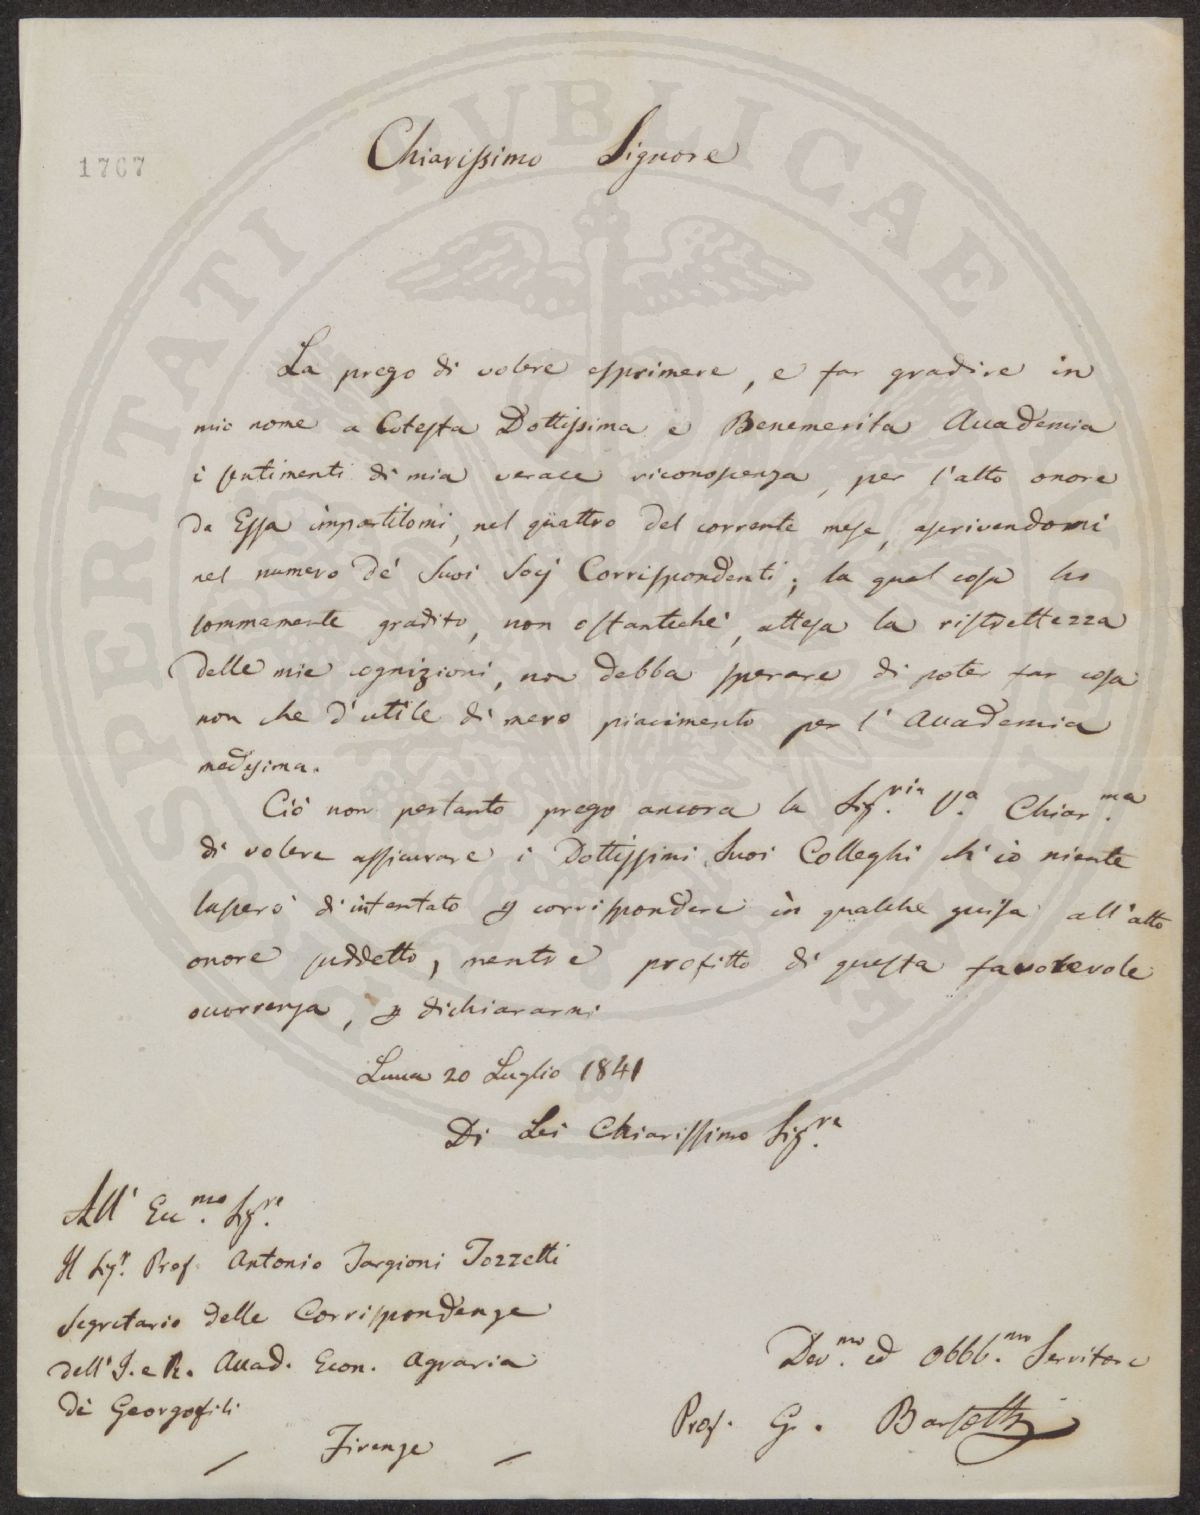 1767
Chiarissimo Signore
La prego di volere esprimere, e far gradire in
mio nome a Cotesta Dottissima e Benemerita Accademia
i sentimenti di mia verace riconoscenza, per l'alto onore
da Essa impartitomi, nel quattro del corrente mese, ascrivendomi
nel numero de' Suoi Socj Corrispondenti; la qual cosa ho
sommamente gradito, non ostantechè, attesa la ristrettezza
delle mie cognizioni, non debba sperare di poter far cosa
non che d'utile di mero piacimento per l'Accademia
medesima.
Ciò non pertanto prego ancora la Sig.ria V.a Chiar.ma
di volere assicurare i Dottissimi Suoi Colleghi ch'io niente
lascerò d'intentato per corrispondere in qualche guisa all'alto
onore suddetto, mentre profitto di questa favorevole
occorrenza, per dichiararmi
Lucca 20 Luglio 1841
Di Lei Chiarissimo Sig.re
All' Ecc.mo Sig.re
Il Sig.r Prof. Antonio Targioni Tozzetti
Segretario delle Corrispondenze
dell'I. e R. Accad. Econ. Agraria
dei Georgofili
Firenze
Dev.mo ed Obbb.mo Servitore
Prof. G. Barsotti
PROSPERITATI PUBLICAE AUGENDAE